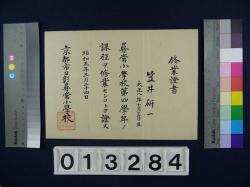 修業證書
笠井研一
尋常小學校第四學年ノ
課程ヲ修業セシコトヲ證ス
昭和三年三月二十四日
京都市日彰尋常小學校
013284